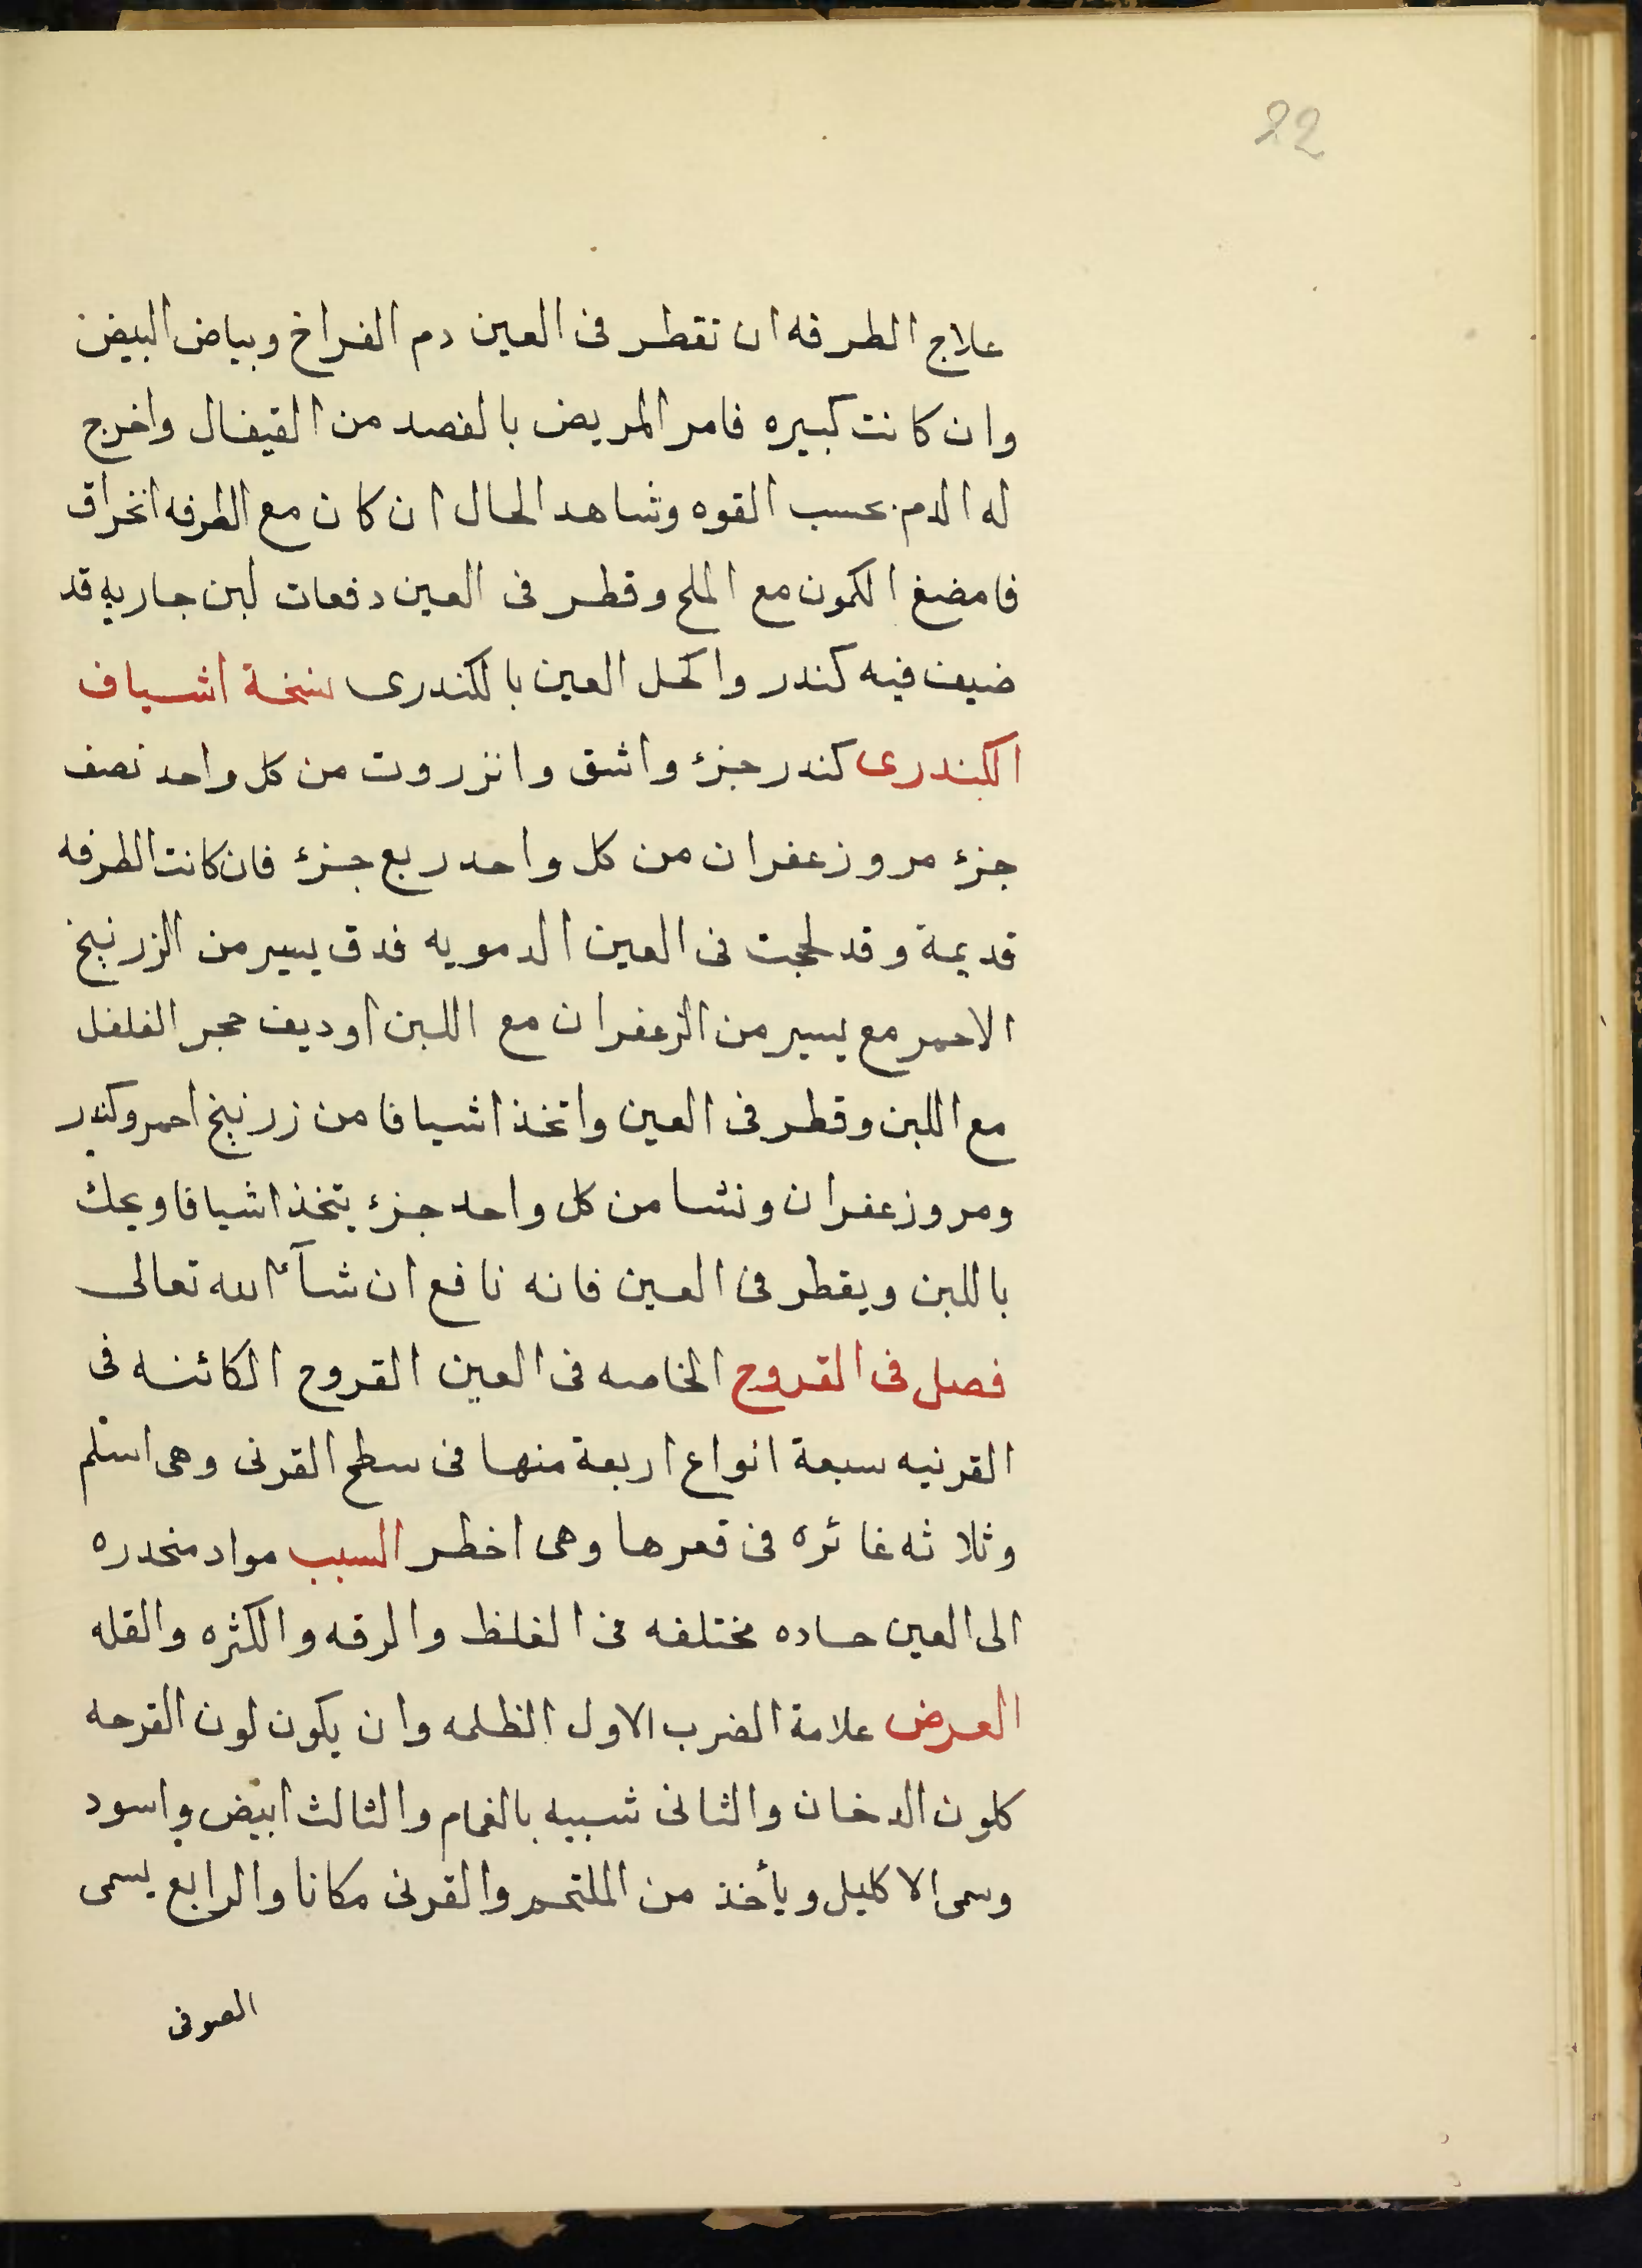 22
علاج الطرفه ان تقطر فى العين دم الفراخ وبياض البيض
وان كانت كبيره فامر المريض بالفصد من القيفال واخرج
له الدم بحسب القوه وشاهد الحال ان كان مع الطرفه انخراق
فامضغ الكمون مع الملح وقطر فى العين دفعات لبن جاريه قد
ضيف فيه كندر واكحل العين بالكندرى نسخة اشياف
الكندرى كندر جزء واشق وانزروت من كل واحد نصف
جزء مر وزعفران من كل واحد ربع جزء فان كانت الطرفه
قديمة وقد لحجت فى العين الدمويه فدق يسير من الزرنيخ
الاحمر مع يسير من الزعفران مع اللبن اوديف حجر الفلفل
مع اللبن وقطر فى العين واتخذ اشيافا من زرنيخ احمر وكندر
ومر وزعفران ونشا من كل واحد جزء يتخذ اشيافا ويحك
باللبن ويقطر فى العين فانه نافع ان شآء الله تعالى
فصل فى القروح الخاصه فى العين القروح الكائنه فى
القرنيه سبعة انواع اربعة منها فى سطح القرنى وهى اسلم
وثلاثه غائره فى قعرها وهى اخطر السبب مواد منحدره
الى العين حاده مختلفه فى الغلظ والرقه والكثره والقله
العرض علامة الضرب الاول الظلمه وان يكون لون القرحه
كلون الدخان والثانى شبيه بالغمام والثالث ابيض واسود
وسمى الاكليل ويأخذ من الملتحم والقرنى مكانا والرابع يسمى
الصوفى